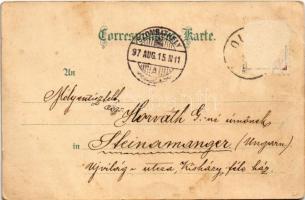 Correspondenz-Karte.
SZOMBATHELY
97 AUG. 15 N 11
An
Mélyentisztelt
Horváth G.-né úrnőnek
in Steinamanger (Ungarn)
Ujvilág-utcza, Kisházy-féle ház.